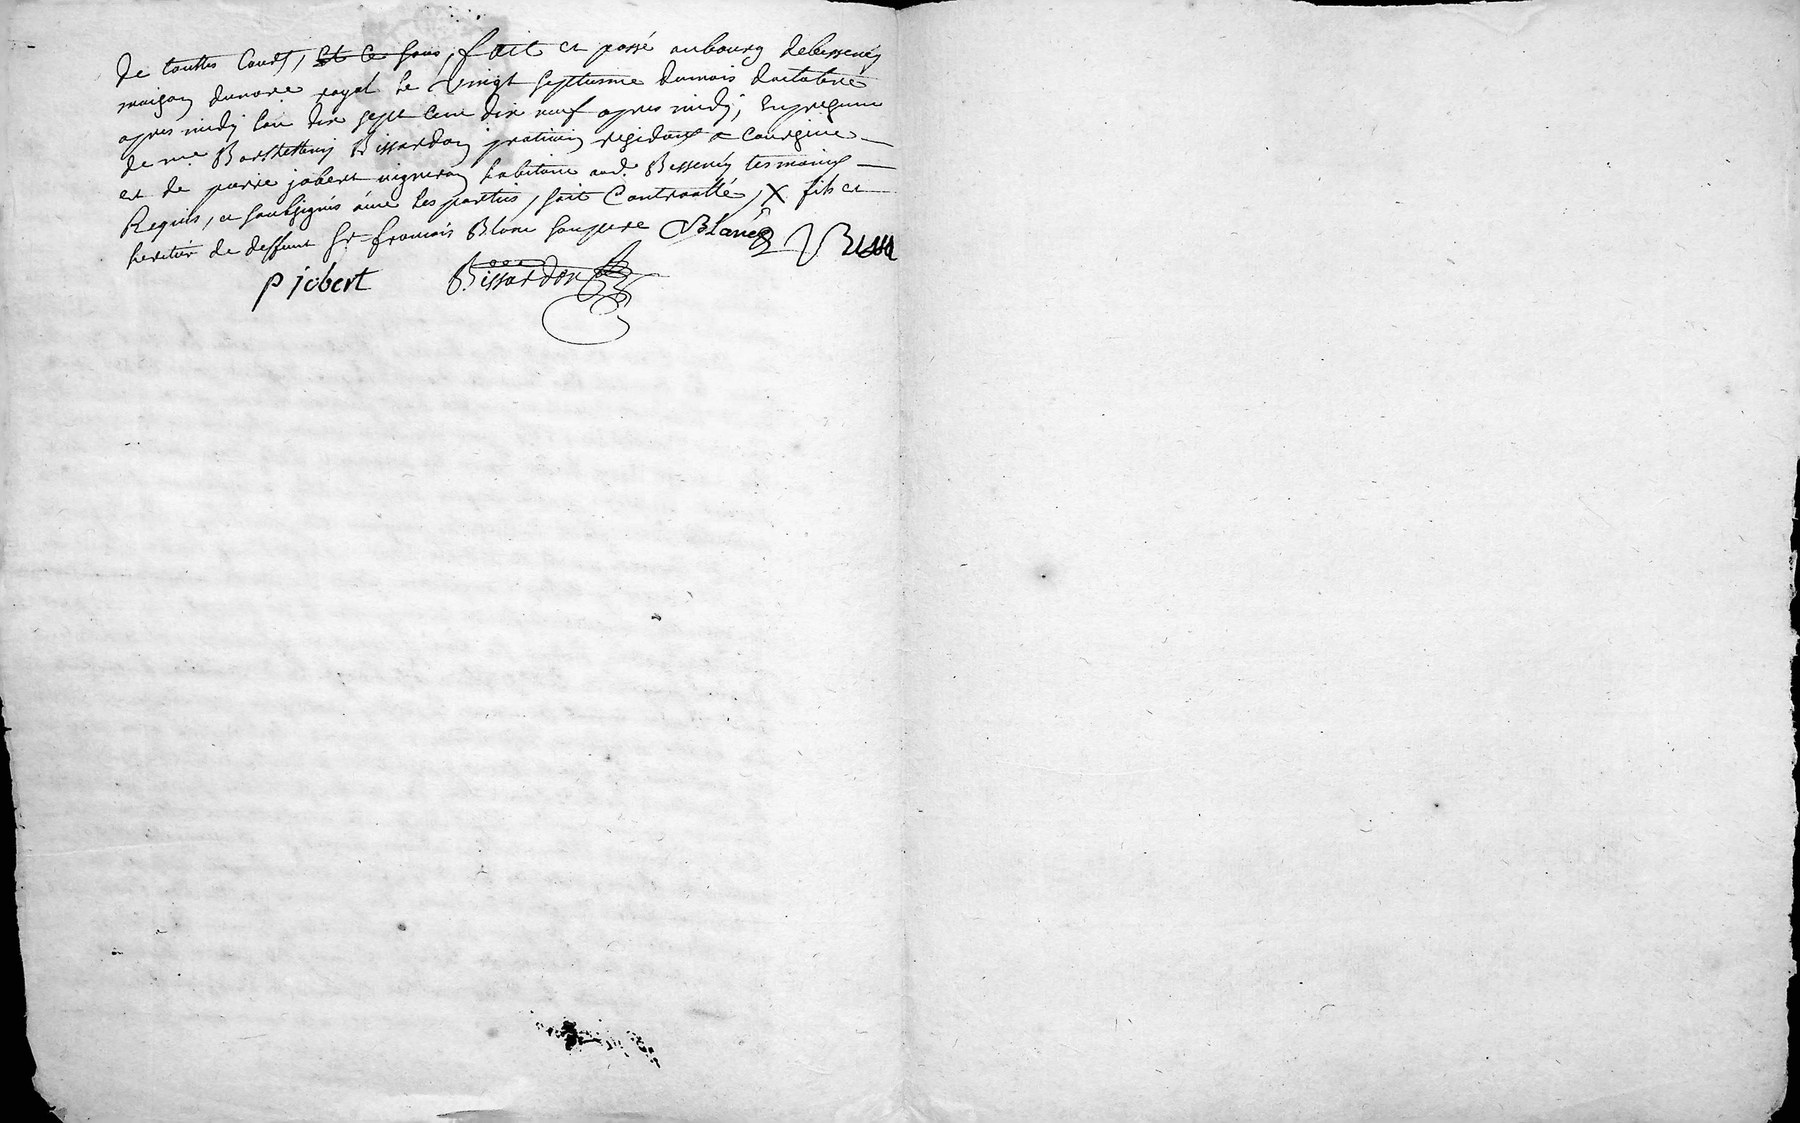 de touttes Cours, et ce sous, fait et passé au bourg de bessenéy
maison du no.re royal le vingt septiesme du mois doctobre
apres midy lan dix sept cent dix neuf apres midy, en presence
de m.e Barthelemy Bissardon praticien residant a Courzieu
et de pierre jobert vigneron habitant aud. Bessenéy tesmoins
Requis, et soubsignés avec les parties, soit Controollé, X fils et
heritier de deffunt Sr. francois Blanc son pere Blanc
P jobert Bissardon